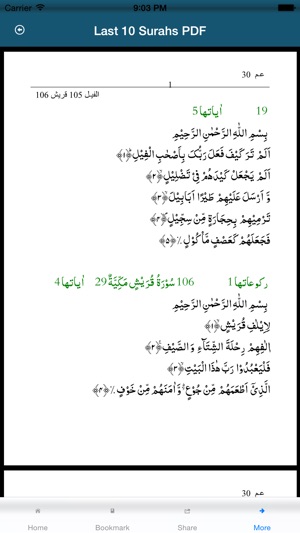 Carrier 9:03 PM
Last 10 Surahs PDF
عم 30
الفيل 105 قريش 106
19 اٰياتها5
بِسْمِ اللّٰهِ الرَّحْمٰنِ الرَّحِيْمِ
اَلَمْ تَرَ كَيْفَ فَعَلَ رَبُّكَ بِاَصْحٰبِ الْفِيْلِ ﴿۱﴾
اَلَمْ يَجْعَلْ كَيْدَهُمْ فِيْ تَضْلِيْلٍ ﴿۲﴾
وَّ اَرْسَلَ عَلَيْهِمْ طَيْرًا اَبَابِيْلَ ﴿۳﴾
تَرْمِيْهِمْ بِحِجَارَةٍ مِّنْ سِجِّيْلٍ ﴿۴﴾
فَجَعَلَهُمْ كَعَصْفٍ مَّاْكُوْلٍ ﴿۵﴾
ركوعاتها1 106 سُوْرَةُ قُرَيْشٍ مَكِّيَّةٌ 29 اٰياتها4
بِسْمِ اللّٰهِ الرَّحْمٰنِ الرَّحِيْمِ
لِاِيْلٰفِ قُرَيْشٍ ﴿۱﴾
اٖلٰفِهِمْ رِحْلَةَ الشِّتَآءِ وَ الصَّيْفِ ﴿۲﴾
فَلْيَعْبُدُوْا رَبَّ هٰذَا الْبَيْتِ ﴿۳﴾
الَّذِيْۤ اَطْعَمَهُمْ مِّنْ جُوْعٍ ۙ وَّ اٰمَنَهُمْ مِّنْ خَوْفٍ ﴿۴﴾
عم 30
Home Bookmark Share More